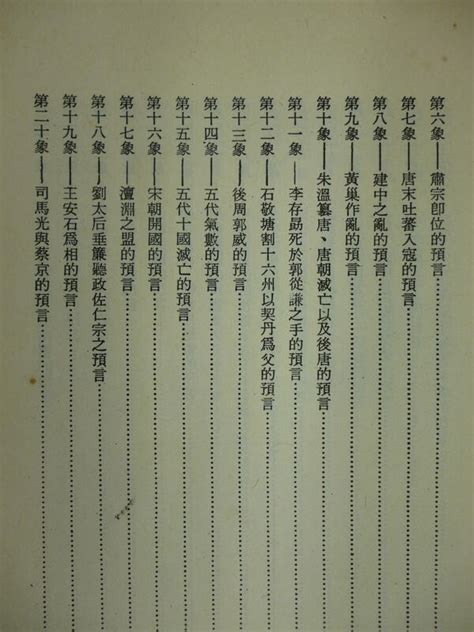 第六象——肅宗卽位的預言
第七象——唐末吐蕃入寇的預言
第八象——建中之亂的預言
第九象——黃巢作亂的預言
第十象——朱溫篡唐、唐朝滅亡以及後唐的預言
第十一象——李存勗死於郭從謙之手的預言
第十二象——石敬塘割十六州以契丹爲父的預言
第十三象——後周郭威的預言
第十四象——五代氣數的預言
第十五象——五代十國滅亡的預言
第十六象——宋朝開國的預言
第十七象——澶淵之盟的預言
第十八象——劉太后垂簾聽政佐仁宗之預言
第十九象——王安石爲相的預言
第二十象——司馬光與蔡京的預言